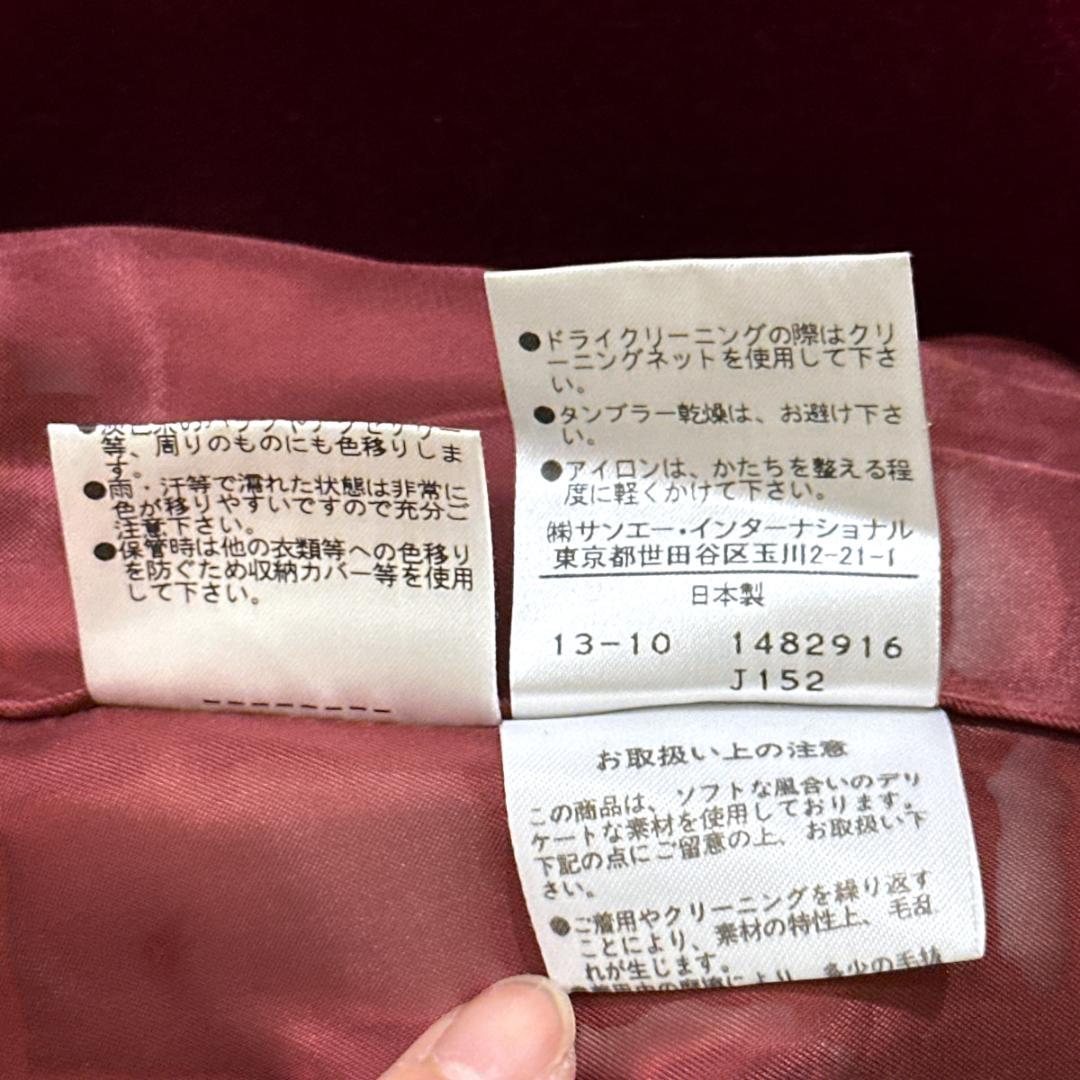 等、周りのものにも色移りしま
す。
●雨・汗等で濡れた状態は非常に
色が移りやすいですので充分ご
注意下さい。
●保管時は他の衣類等への色移り
を防ぐため収納カバー等を使用
して下さい。
●ドライクリーニングの際はクリ
ーニングネットを使用して下さ
い。
●タンブラー乾燥は、お避け下さ
い。
●アイロンは、かたちを整える程
度に軽くかけて下さい。
㈱サンエー・インターナショナル
東京都世田谷区玉川2-21-1
日本製
13-10 1482916
J152
お取扱い上の注意
この商品は、ソフトな風合いのデリ
ケートな素材を使用しております。
下記の点にご留意の上、お取扱い下
さい。
●ご着用やクリーニングを繰り返す
ことにより、素材の特性上、毛乱
れが生じます。